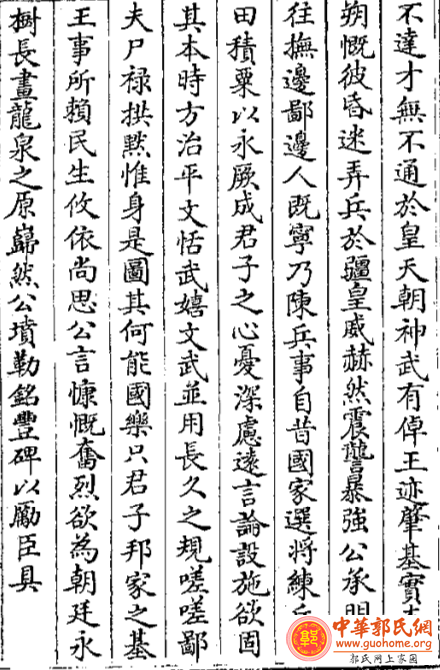 不達才無不通於皇天朝神武有倬王迹肇基實
朔慨彼昏迷弄兵於疆皇威赫然震讋暴強公承明
往撫邊鄙邊人既寧乃陳兵事自昔國家選將練兵
田積粟以永厥成君子之心憂深慮遠言論設施欲固
其本時方治平文恬武嬉文武並用長久之規嗟嗟鄙
夫尸祿拱默惟身是圖其何能國樂只君子邦家之基
王事所賴民生攸依尚思公言慷慨奮烈欲為朝廷永
樹長畫龍泉之原巋然公墳勒銘豐碑以勵臣具
中華郭氏網
www.guohome.org
郭氏网上家园